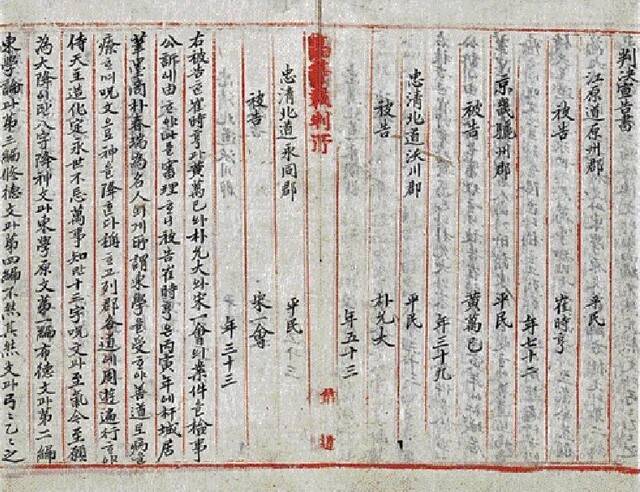 判決宣告書
江原道原州郡
平民
被告 崔時亨
年七十二
京畿驪州郡
平民
被告 黃萬己
年三十九
忠淸北道沃川郡
平民
被告 朴允大
年五十三
忠淸北道永同郡
平民
被告 宋一會
年三十三
右被告崔時亨과黃萬己와朴允大와宋一會의案件을檢事
公訴에由하야此를審理하니被告崔時亨은丙寅年에杆城居
筆墨商朴春瑞爲名人에게所謂東學을受하야善道로病을
療하며呪文으로神을降한다稱하고列郡各道에周遊遍行하야
侍天主造化定永世不忘萬事知라十三字呪文과至氣今至願
爲大降이란八字降神文과東學原文第一編布德文과第二編
東學論과第三編修德文과第四編不然其然文과弓弓乙乙之